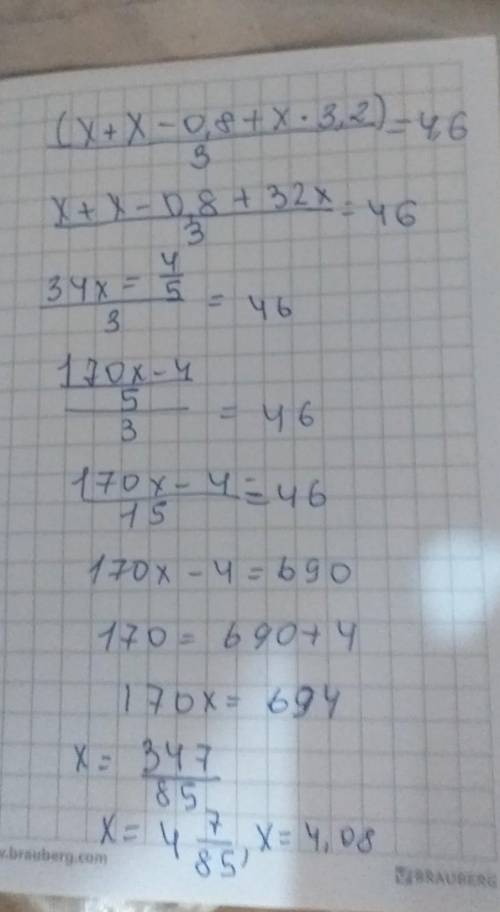 (x+x-0,8+x·3,2)/3=4,6
x+x-0,8+32x/3=46
34x=4/5/3=46
170x-4/5/3=46
170x-4/15=46
170x-4=690
170=690+4
170x=694
x=347/85
x=4 7/85, x=4,08
w.brauberg.com BRAUBERG